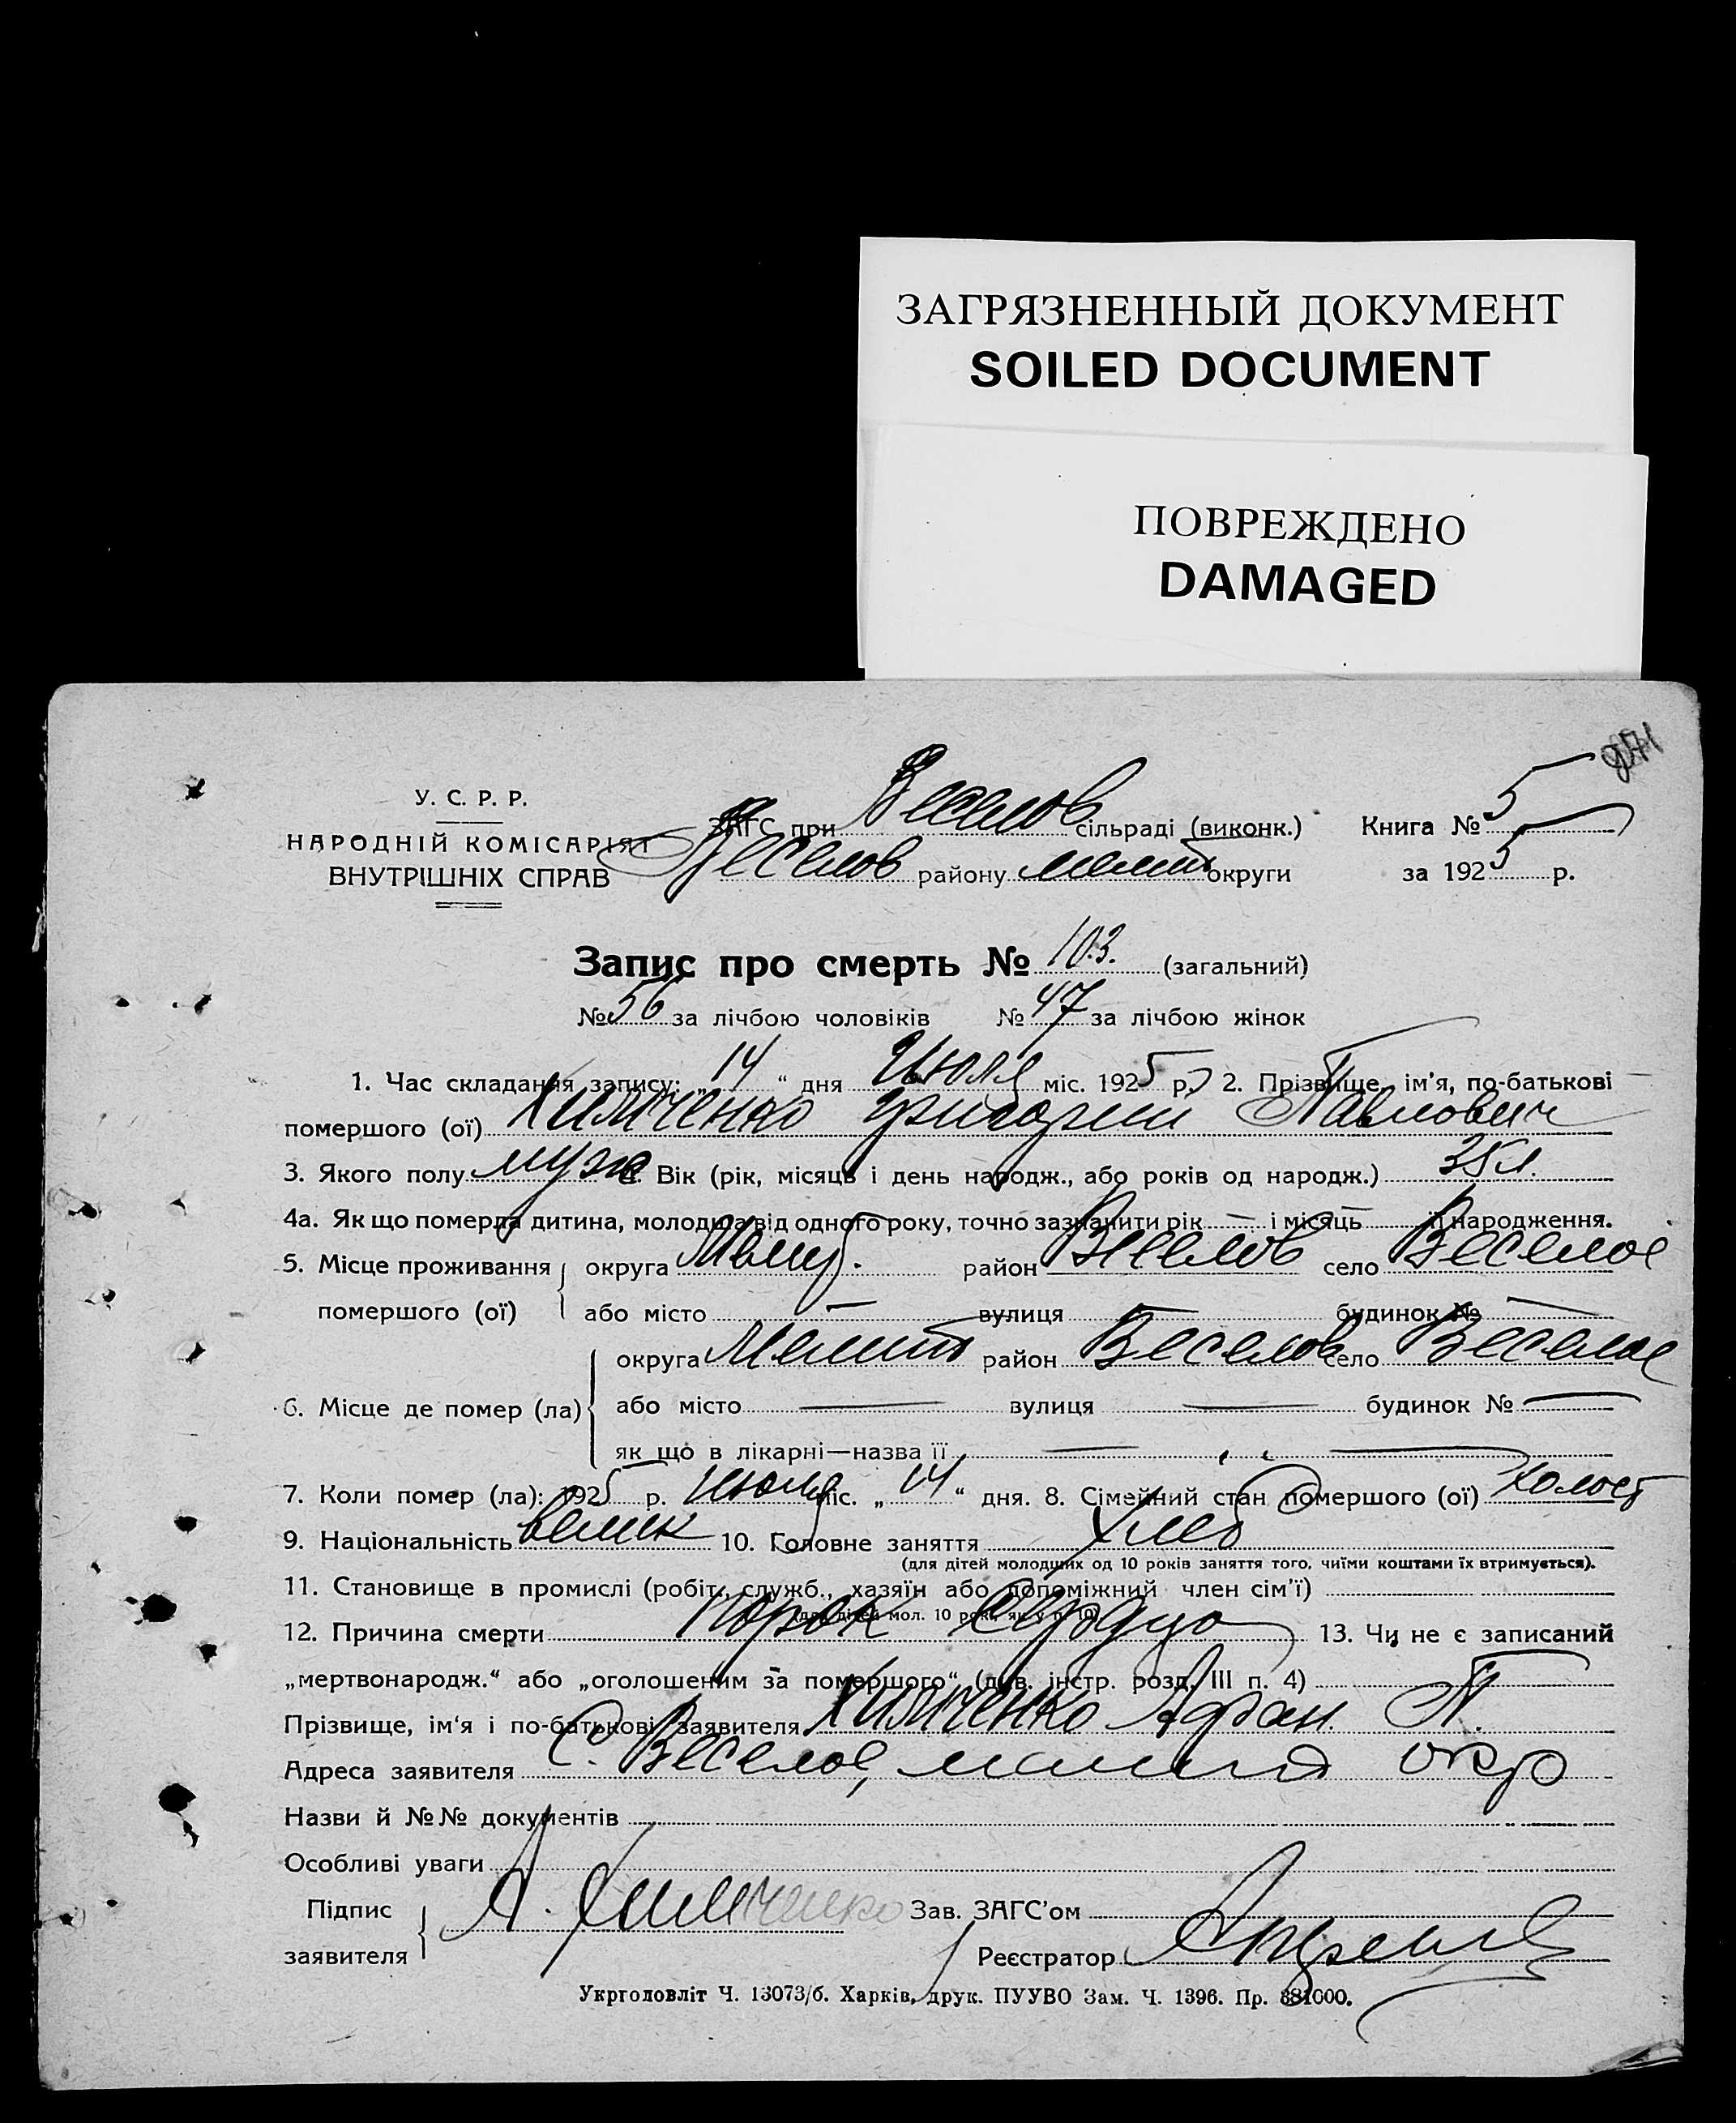 ЗАГРЯЗНЕННЫЙ ДОКУМЕНТ
SOILED DOCUMENT
ПОВРЕЖДЕНО
DAMAGED
У. С. Р. Р.
НАРОДНІЙ КОМІСАРІЯТ
ВНУТРІШНІХ СПРАВ
ЗАГС при Веселов сільраді (виконк.) Книга № 5
Веселов району мелит округи за 1925 р.
Запис про смерть № 103. (загальний)
№ 56 за лічбою чоловіків № 47 за лічбою жінок
1. Час складання запису: „ 14 “ дня Июля міс. 1925 р. 2. Прізвище, ім’я, по-батькові
помершого (ої) Григорий Павлович
3. Якого полу муж 4. Вік (рік, місяць і день народж., або років од народж.) 35 л.
4а. Як що померла дитина, молодша від одного року, точно зазначити рік — і місяць — її народження.
5. Місце проживання помершого (ої) округа Мелит. район Веселов село Веселое
або місто — вулиця — будинок № —
6. Місце де помер (ла) округа Мелит район Веселов село Веселое
або місто — вулиця — будинок № —
як що в лікарні—назва її — —
7. Коли помер (ла): 1925 р. Июля міс. „ 14 “ дня. 8. Сімейний стан помершого (ої) холост
9. Національність велик 10. Головне заняття хлеб
(для дітей молодших од 10 років заняття того, чиїми коштами їх втримується).
11. Становище в промислі (робітн., служб., хазяїн або допоміжний член сім’ї)
(для дітей мол. 10 рок., як у п. 10)
12. Причина смерти порок сердца 13. Чи не є записаний
„мертвонародж.“ або „оголошеним за помершого“ (див. інстр. розд. III п. 4) —
Прізвище, ім‘я і по-батькові заявителя П.
Адреса заявителя С. Веселое, мелит окр
Назви й №№ документів
Особливі уваги
Підпис заявителя А. Зав. ЗАГС’ом
Реєстратор
Укрголовліт Ч. 13073/б. Харків, друк. ПУУВО Зам. Ч. 1396. Пр. 381000.